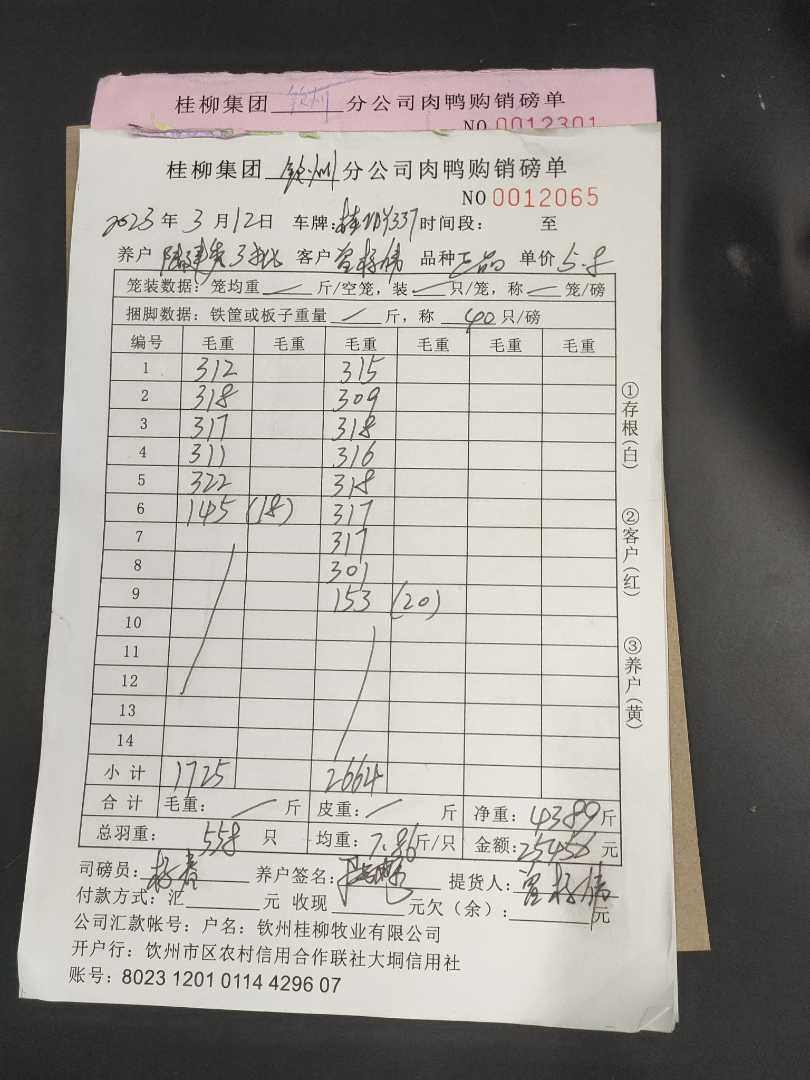 桂柳集团 钦州 分公司肉鸭购销磅单
NO 0012301
桂柳集团 钦州 分公司肉鸭购销磅单
NO 0012065
2023 年 3 月 12 日 车牌: 337 时间段: 至
养户 客户 曾 品种 正品 单价 5.8
笼装数据: 笼均重 斤/空笼, 装 只/笼, 称 笼/磅
捆脚数据: 铁筐或板子重量 斤, 称 40 只/磅
编号 毛重 毛重 毛重 毛重 毛重 毛重
1 312 315
2 318 309
3 317 318
4 311 316
5 322 318
6 145 (18) 317
7 317
8 301
9 153 (20)
10
11
12
13
14
小计 1725 2664
合计 毛重: 斤 皮重: 斤 净重: 4389 斤
总羽重: 558 只 均重: 7.86 斤/只 金额: 25456 元
司磅员: 养户签名: 提货人: 曾
付款方式: 汇 元 收现 元欠(余): 元
公司汇款帐号: 户名: 钦州桂柳牧业有限公司
开户行: 钦州市区农村信用合作联社大垌信用社
账号: 8023 1201 0114 4296 07
①存根(白)
②客户(红)
③养户(黄)